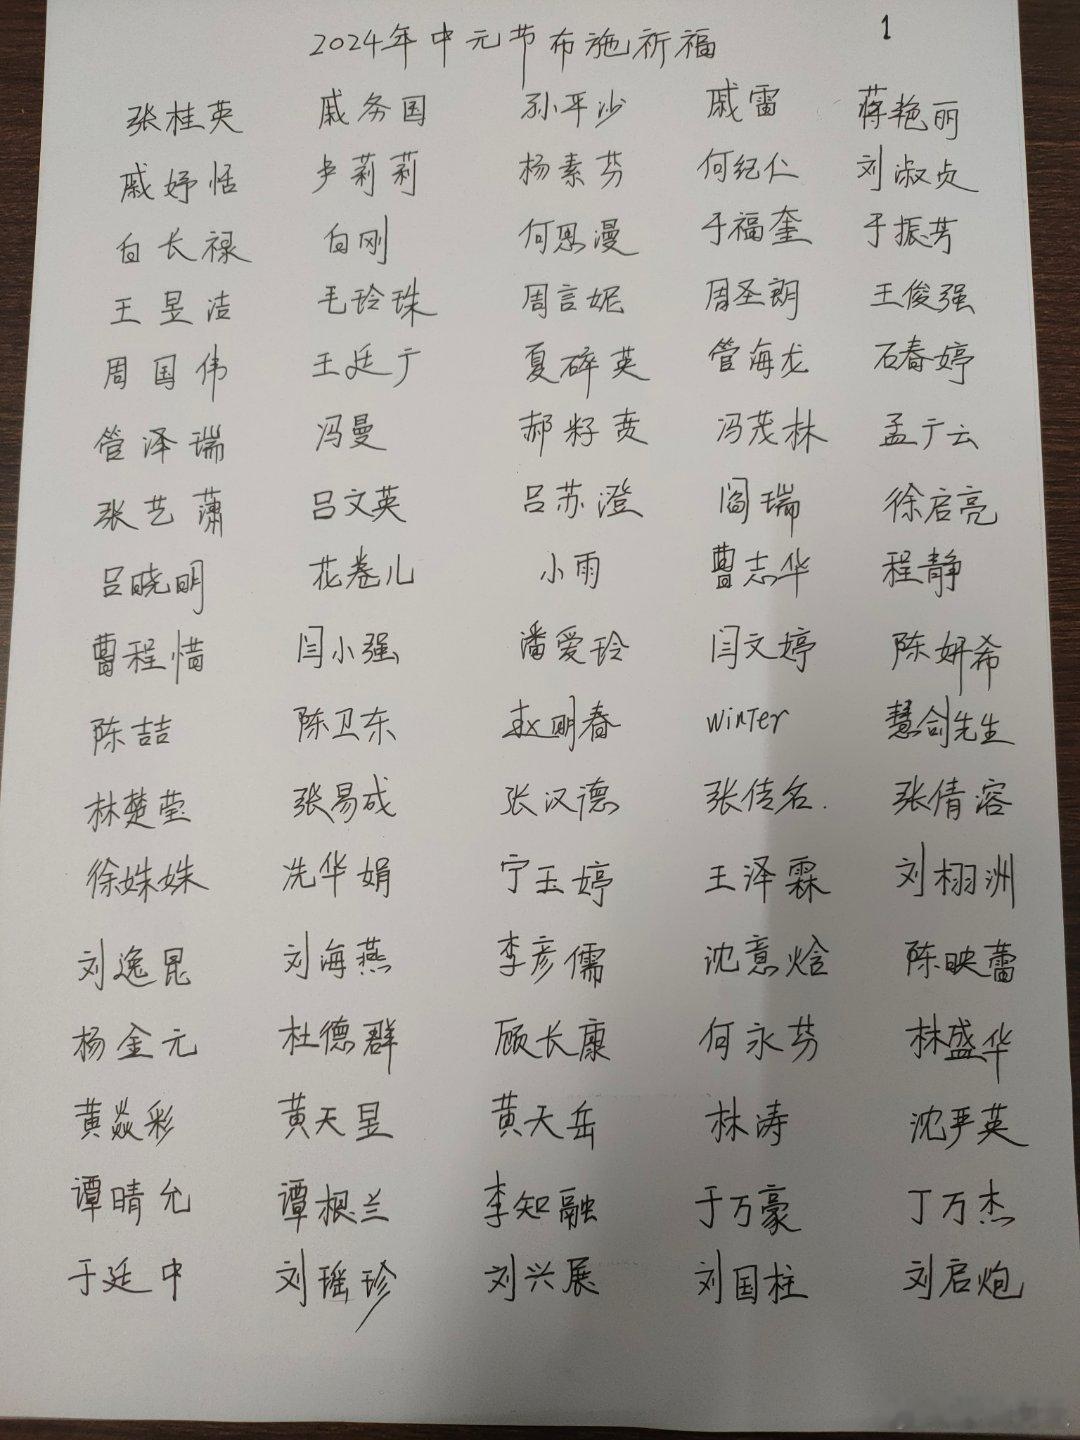 2024年中元节布施祈福 1
张桂英 戚务国 孙平沙 戚雷 蒋艳丽
戚妤恬 卢莉莉 杨素芬 何纪仁 刘淑贞
白长禄 白刚 何恩漫 于福奎 于振芳
王昱洁 毛玲珠 周言妮 周圣朗 王俊强
周国伟 王廷广 夏碎英 管海龙 石春婷
管泽瑞 冯曼 郝籽贲 冯茂林 孟广云
张艺潇 吕文英 吕苏澄 阎瑞 徐启亮
吕晓明 花卷儿 小雨 曹志华 程静
曹程惜 闫小强 潘爱玲 闫文婷 陈妍希
陈喆 陈卫东 赵明春 winTer 慧剑先生
林楚莹 张易成 张汉德 张传名. 张倩溶
徐姝姝 冼华娟 宁玉婷 王泽霖 刘栩洲
刘逸昆 刘海燕 李彦儒 沈意焓 陈映蕾
杨金元 杜德群 顾长康 何永芬 林盛华
黄焱彩 黄天昱 黄天岳 林涛 沈严英
谭晴允 谭根兰 李知融 于万豪 丁万杰
于廷中 刘瑶珍 刘兴展 刘国柱 刘启炮